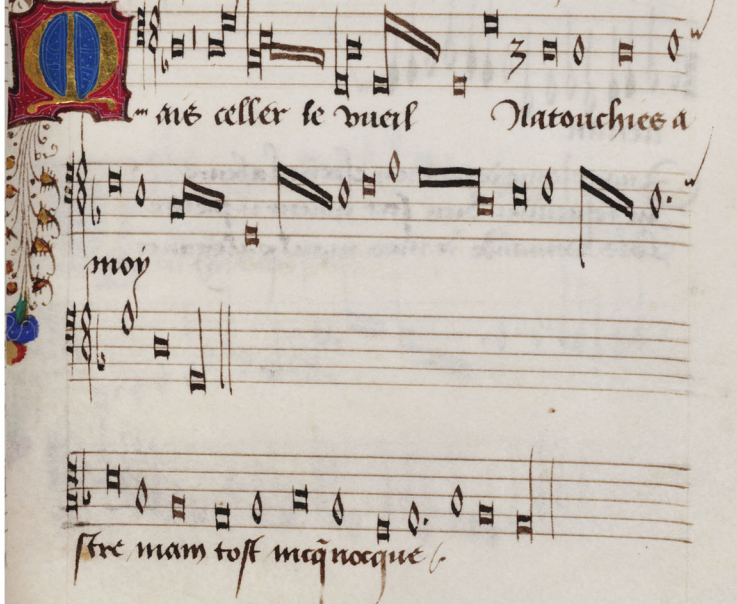 Mais celler le vueil Natouchies a
moy
stre mam tost nicq̄nocque